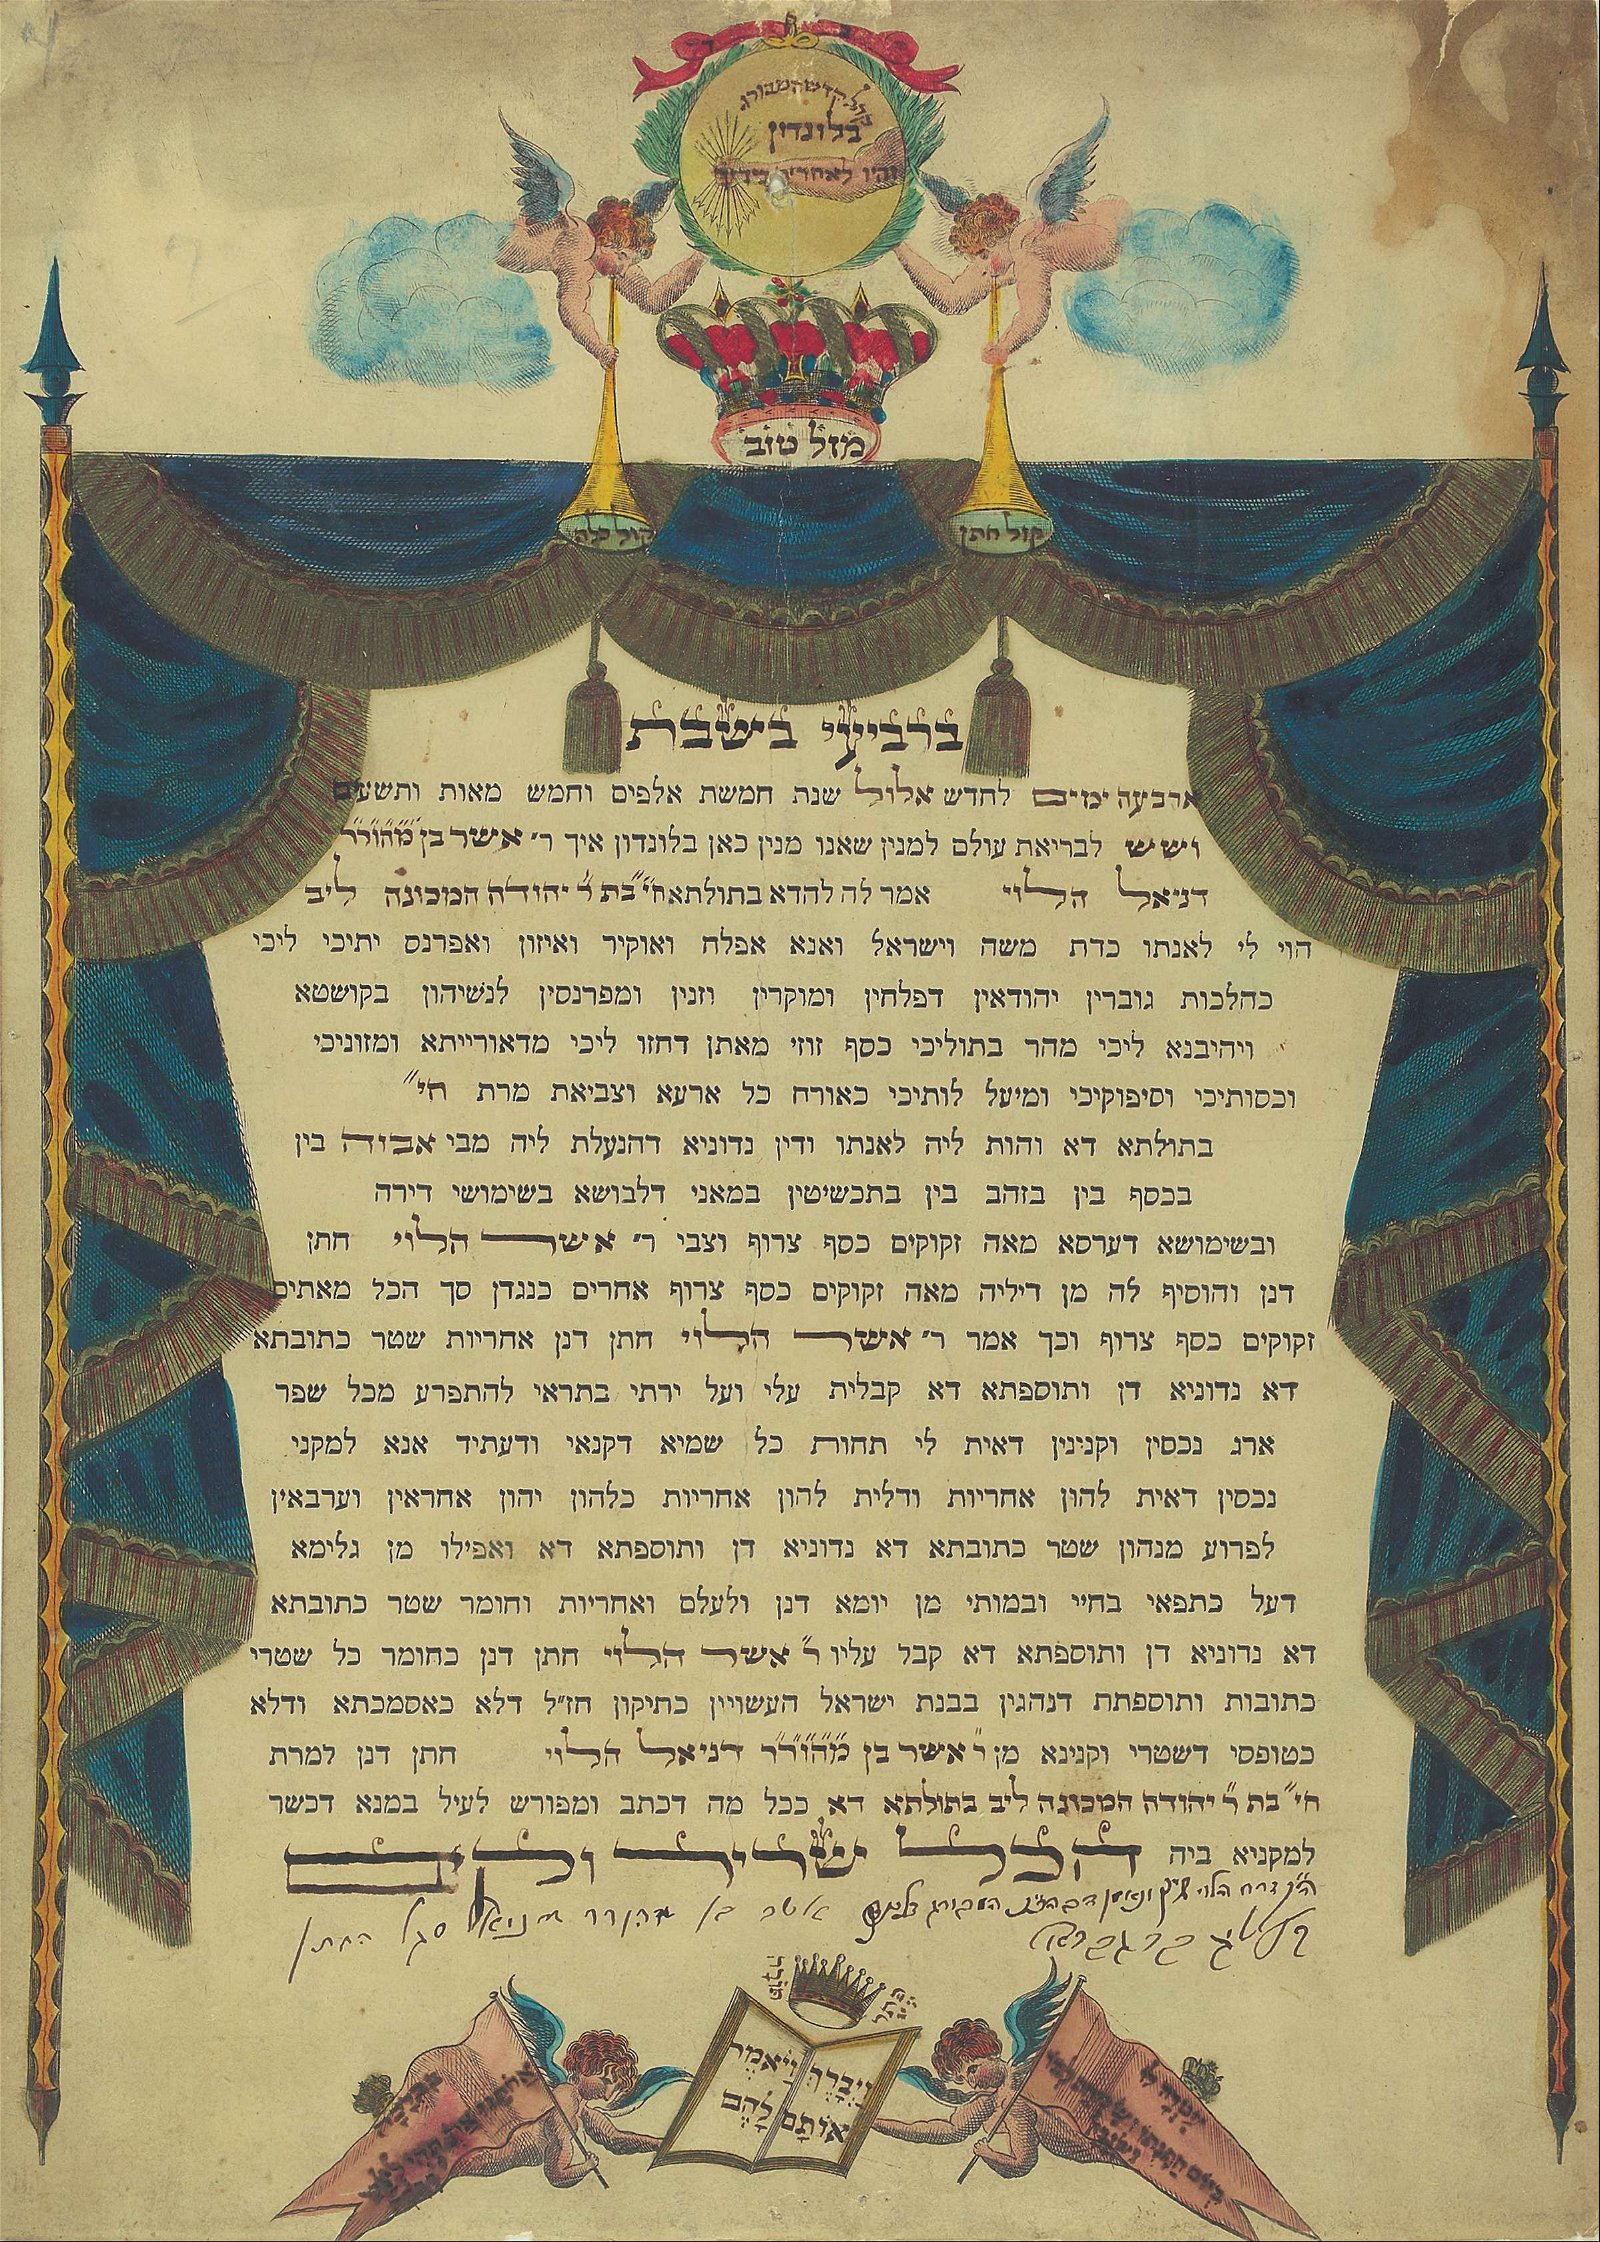 בלונדון
והיו לאחדים בידך
מזל טוב
קול חתן
קול כלה
ברביעי בשבת
ארבעה ימים לחדש אלול שנת חמשת אלפים וחמש מאות ותשעים
ושש לבריאת עולם למנין שאנו מנין כאן בלונדון איך ר׳ אשר בן מהורר
דניאל הלוי אמר לה להדא בתולתא חי״ בת ר׳ יהודה המכונה ליב
הוי לי לאנתו כדת משה וישראל ואנא אפלח ואוקיר ואיזון ואפרנס יתיכי ליכי
כהלכות גוברין יהודאין דפלחין ומוקרין וזנין ומפרנסין לנשיהון בקושטא
ויהיבנא ליכי מהר בתוליכי כסף זוזי מאתן דחזו ליכי מדאורייתא ומזוניכי
וכסותיכי וסיפוקיכי ומיעל לותיכי כאורח כל ארעא וצביאת מרת חי״
בתולתא דא והות ליה לאנתו ודין נדוניא דהנעלת ליה מבי אבוה בין
בכסף בין בזהב בין בתכשיטין במאני דלבושא בשימושי דירה
ובשימושא דערסא מאה זקוקים כסף צרוף וצבי ר׳ אשר הלוי חתן
דנן והוסיף לה מן דיליה מאה זקוקים כסף צרוף אחרים כנגדן סך הכל מאתים
זקוקים כסף צרוף וכך אמר ר׳ אשר הלוי חתן דנן אחריות שטר כתובתא
דא נדוניא דן ותוספתא דא קבלית עלי ועל ירתי בתראי להתפרע מכל שפר
ארג נכסין וקנינין דאית לי תחות כל שמיא דקנאי ודעתיד אנא למקני
נכסין דאית להון אחריות ודלית להון אחריות כלהון יהון אחראין וערבאין
לפרוע מנהון שטר כתובתא דא נדוניא דן ותוספתא דא ואפילו מן גלימא
דעל כתפאי בחיי ובמותי מן יומא דנן ולעלם ואחריות וחומר שטר כתובתא
דא נדוניא דן ותוספתא דא קבל עליו ר״ אשר הלוי חתן דנן כחומר כל שטרי
כתובות ותוספתת דנהגין בבנת ישראל העשויין כתיקון חז״ל דלא כאסמכתא ודלא
כטופסי דשטרי וקנינא מן ר״ אשר בן מהורר דניאל הלוי חתן דנן למרת
חי״ בת ר״ יהודה המכונה ליב בתולתא דא ככל מה דכתב ומפורש לעיל במנא דכשר
למקניא ביה הכל שריר וקים
אשר בן דניאל סגל החתן
ויברך ויאמר
אותם להם